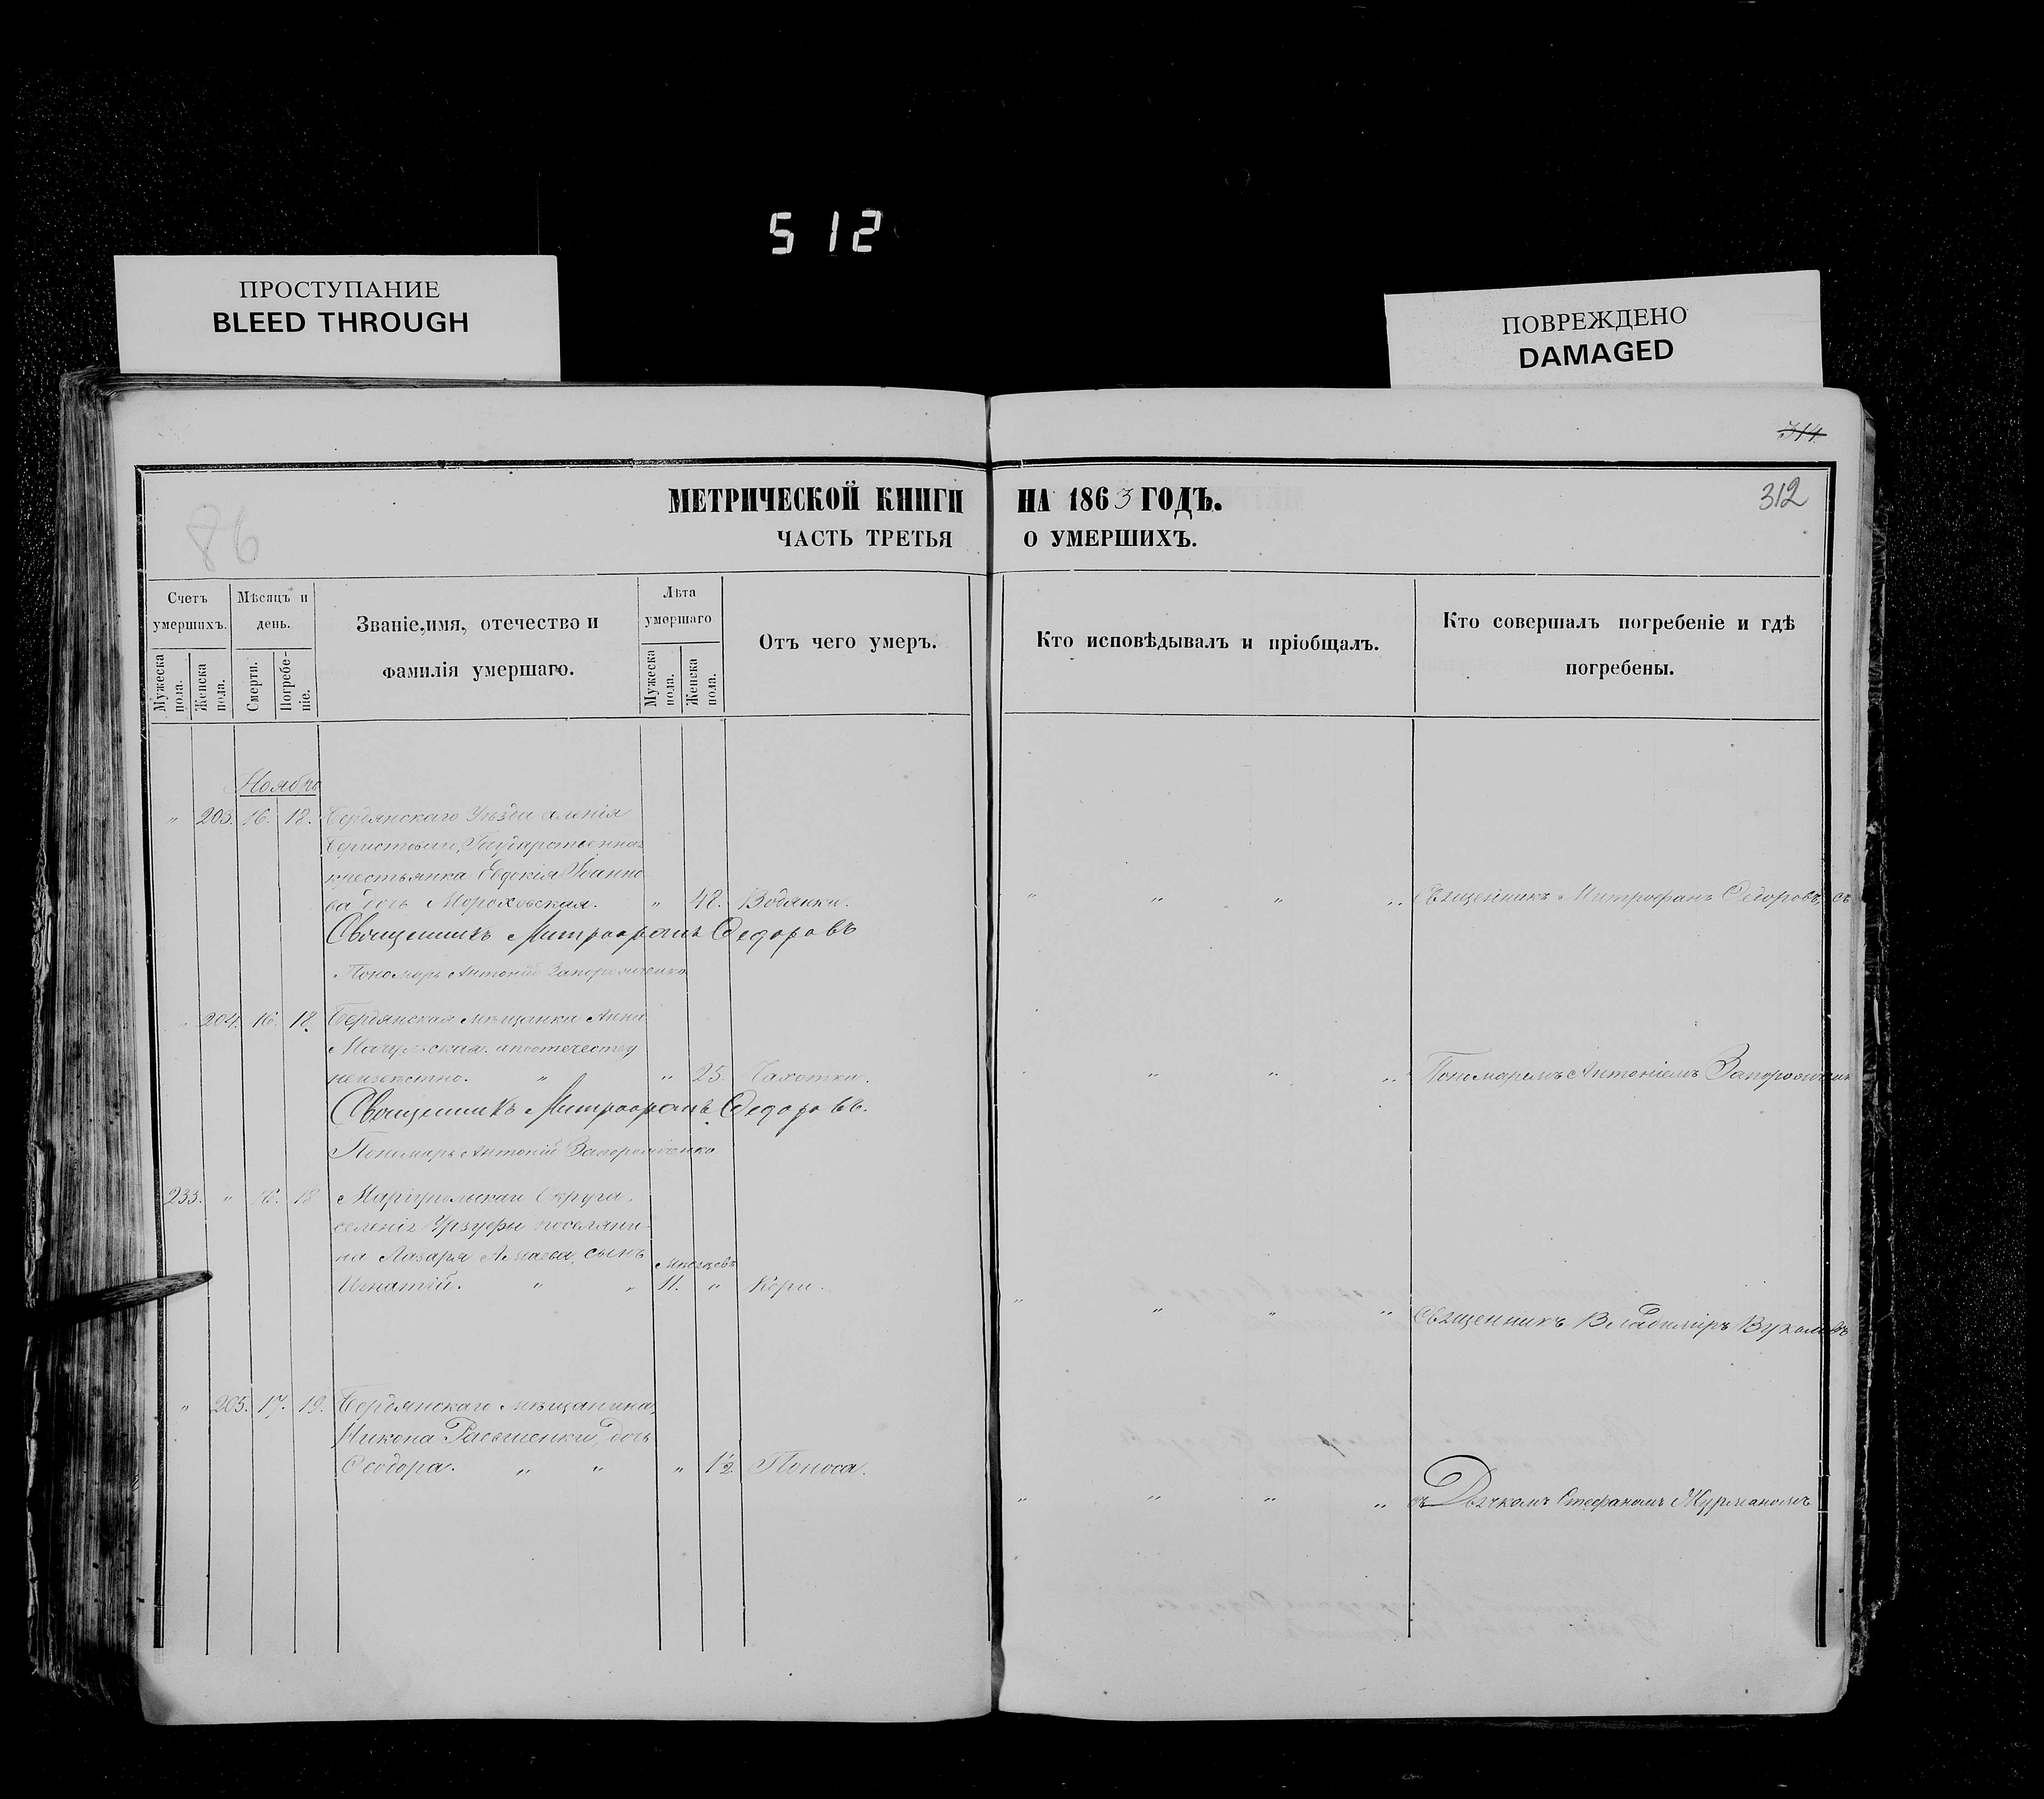 512
ПРОСТУПАНИЕ
BLEED THROUGH
ПОВРЕЖДЕНО
DAMAGED
314
312
86
МЕТРИЧЕСКОЙ КНИГИ НА 1863 ГОДЪ.
ЧАСТЬ ТРЕТЬЯ О УМЕРШИХЪ.
Счетъ умершихъ.
Мужеска пола.
Женска пола.
Мѣсяцъ и день.
Смерти.
Погребеніе.
Званіе, имя, отечество и фамилія умершаго.
Лѣта умершаго
Мужеска пола.
Женска пола.
Отъ чего умеръ.
Кто исповѣдывалъ и пріобщалъ.
Кто совершалъ погребеніе и гдѣ погребены.
Ноябрь
" 203. 16. 18. Бердянскаго Уѣзда
Государственная
крестьянка Евдокія Іоанно
ва дочь Мороховская. " 48. Водянки. " " " " Священникъ Митрофанъ Ѳедоровъ, съ
Священникъ Митрофанъ Ѳедоровъ
Пономарь Антоній Запорожченко
" 204. 16. 18. Бердянская мѣщанка Анна
Мачульская. апоотечеству
неизвѣстно. " " 25. Чахотки. " " " " Пономаремъ Антоніемъ
Священникъ Митрофанъ Ѳедоровъ.
Пономарь Антоній Запорожченко
233. " 16. 18 Маріупольскаго Округа,
селенія Урзуфи поселяни-
на Лазаря сынъ мѣсяцевъ
Игнатій. " " 11. " Кори. " " " " Священникъ Владиміръ Вукаловъ
" 205. 17. 19. Бердянскаго мѣщанина,
Никона дочь
Ѳеодора. " " " 1½ Поноса. " " " " съ Дьячкомъ Стефаномъ Журманомъ